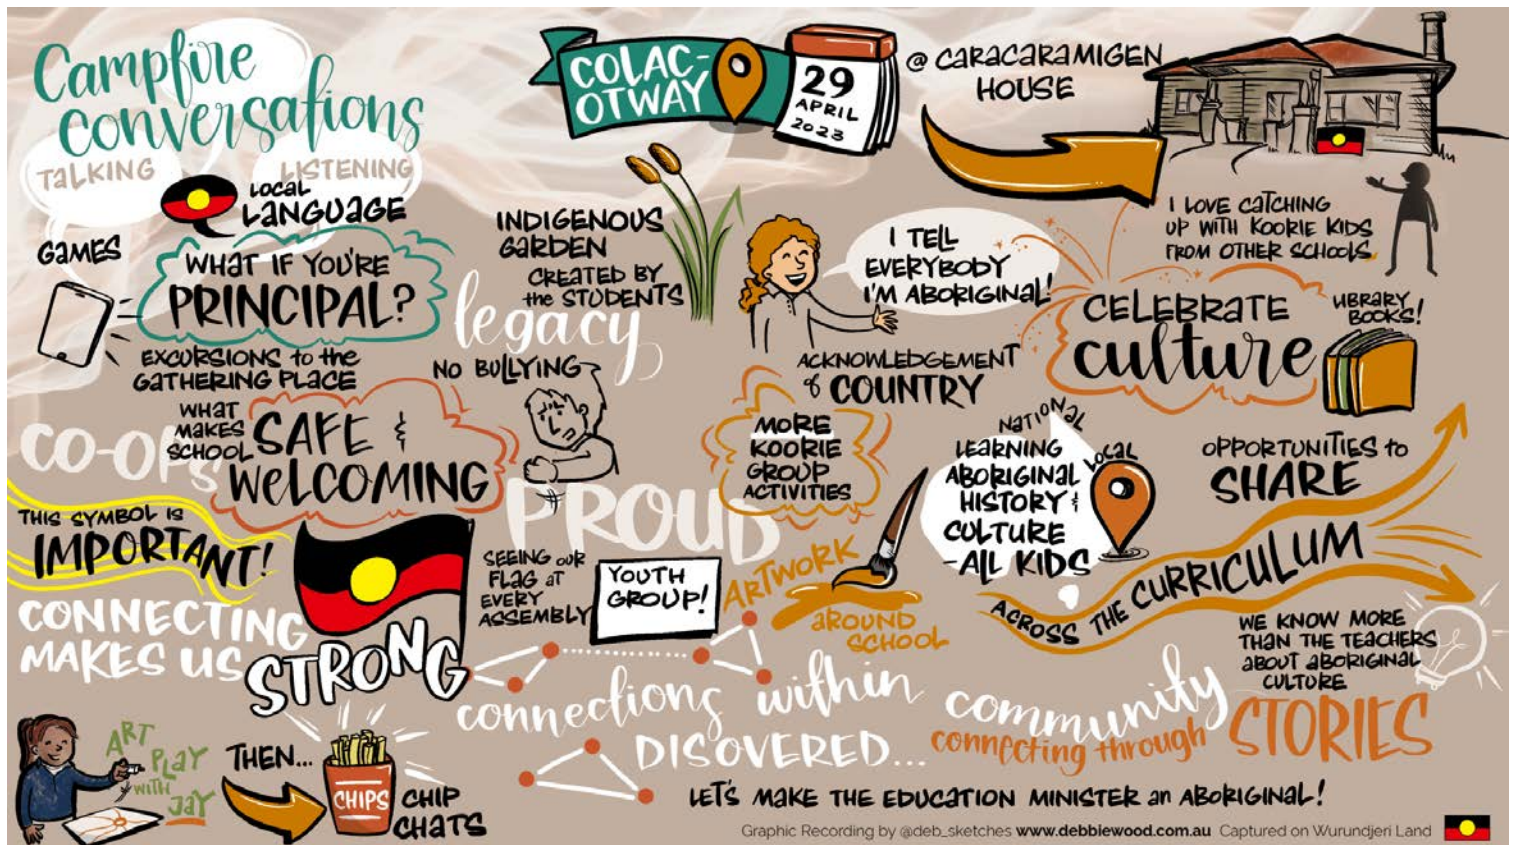 Campfire
conversations
TALKING
LISTENING
COLAC-
OTWAY
29
APRIL
2023
@ CARACARAMIGEN
HOUSE
LOCAL
LANGUAGE
GAMES
WHAT IF YOU'RE
PRINCIPAL?
EXCURSIONS to the
GATHERING PLACE
INDIGENOUS
GARDEN
CREATED BY
the STUDENTS
legacy
I TELL
EVERYBODY
I'M ABORIGINAL!
I LOVE CATCHING
UP WITH KOORIE KIDS
FROM OTHER SCHOOLS
CELEBRATE
culture
LIBRARY
BOOKS!
ACKNOWLEDGEMENT
of COUNTRY
NO BULLYING
WHAT
MAKES
SCHOOL
SAFE &
WELCOMING
CO-OPS
PROUD
MORE
KOORIE
GROUP
ACTIVITIES
NATIONAL
LOCAL
LEARNING
ABORIGINAL
HISTORY &
CULTURE
-ALL KIDS
OPPORTUNITIES to
SHARE
ACROSS THE CURRICULUM
THIS SYMBOL IS
IMPORTANT!
CONNECTING
MAKES US
STRONG
SEEING OUR
FLAG AT
EVERY
ASSEMBLY
YOUTH
GROUP!
ARTWORK
AROUND
SCHOOL
WE KNOW MORE
THAN THE TEACHERS
ABOUT ABORIGINAL
CULTURE
connections within community
DISOVERED...
connecting through STORIES
ART
PLAY
WITH
JAY
THEN...
CHIPS
CHIP
CHATS
LET'S MAKE THE EDUCATION MINISTER an ABORIGINAL!
Graphic Recording by @deb_sketches www.debbiewood.com.au Captured on Wurundjeri Land